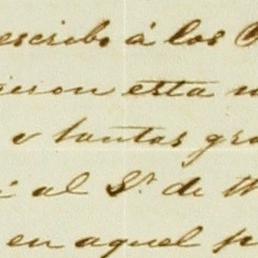 escribo á los
ieron esta
e tantas gra
al Sr. de
en aquel p